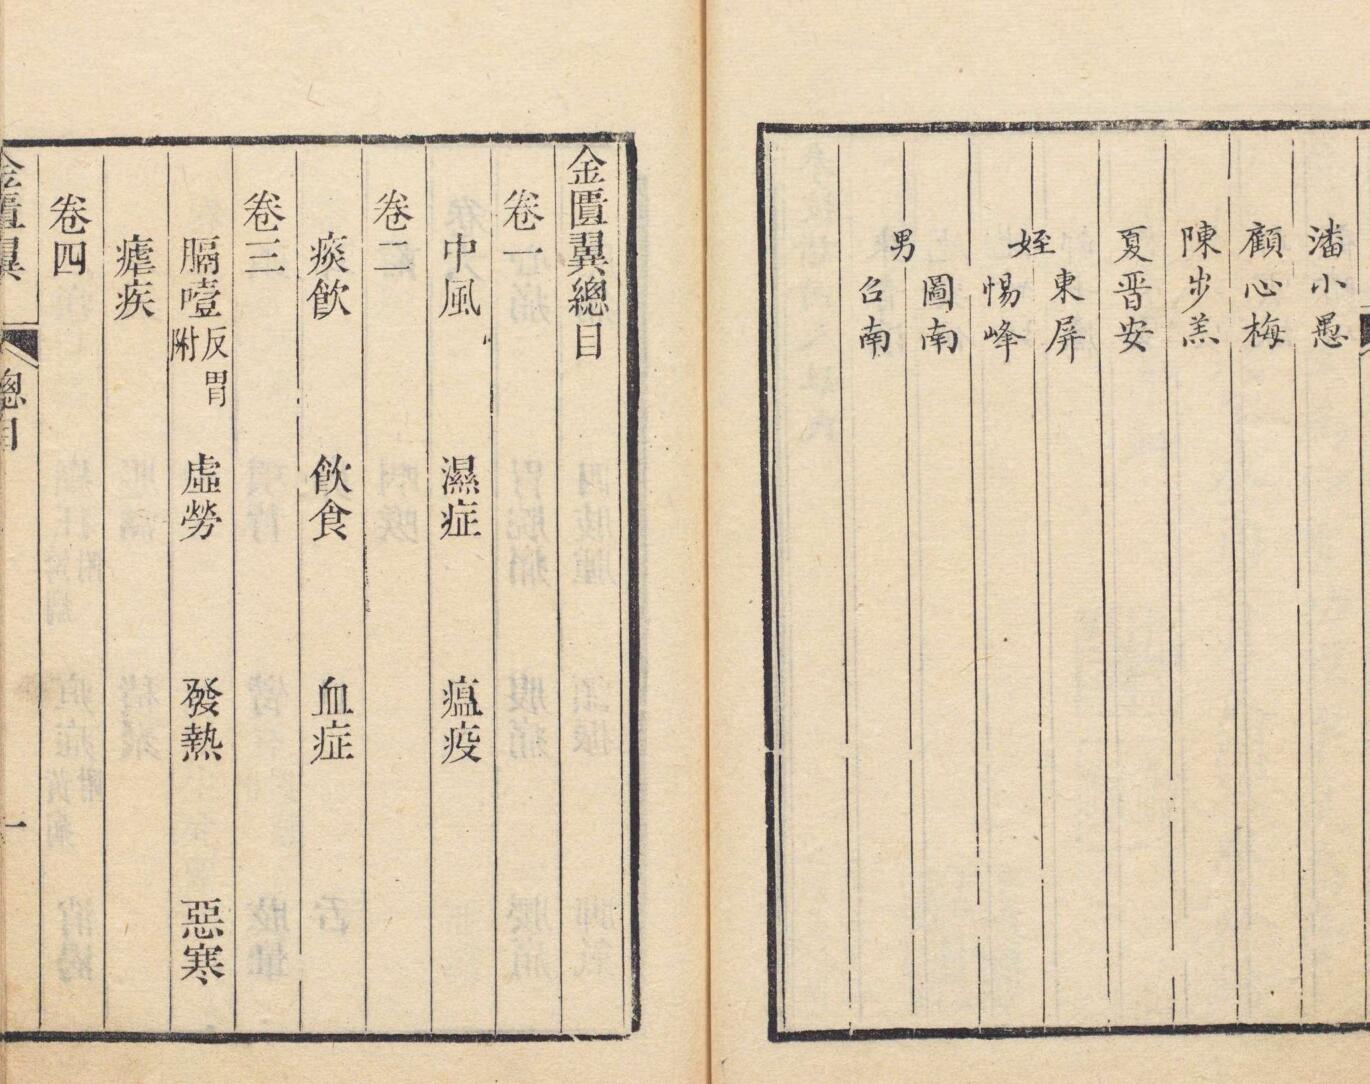 潘小愚
顧心梅
陳步羔
夏晋安
姪
東屏
惕峰
男
圖南
召南
金匱翼總目
卷一
中風 濕症 瘟疫
卷二
痰飲 飲食 血症
卷三
膈噎反胃附 虛勞 發熱 惡寒
瘧疾
卷四
金匱翼 總目 一